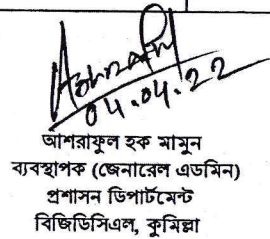 04.04.22
আশরাফুল হক মামুন
ব্যবস্থাপক (জেনারেল এডমিন)
প্রশাসন ডিপার্টমেন্ট
বিজিডিসিএল, কুমিল্লা